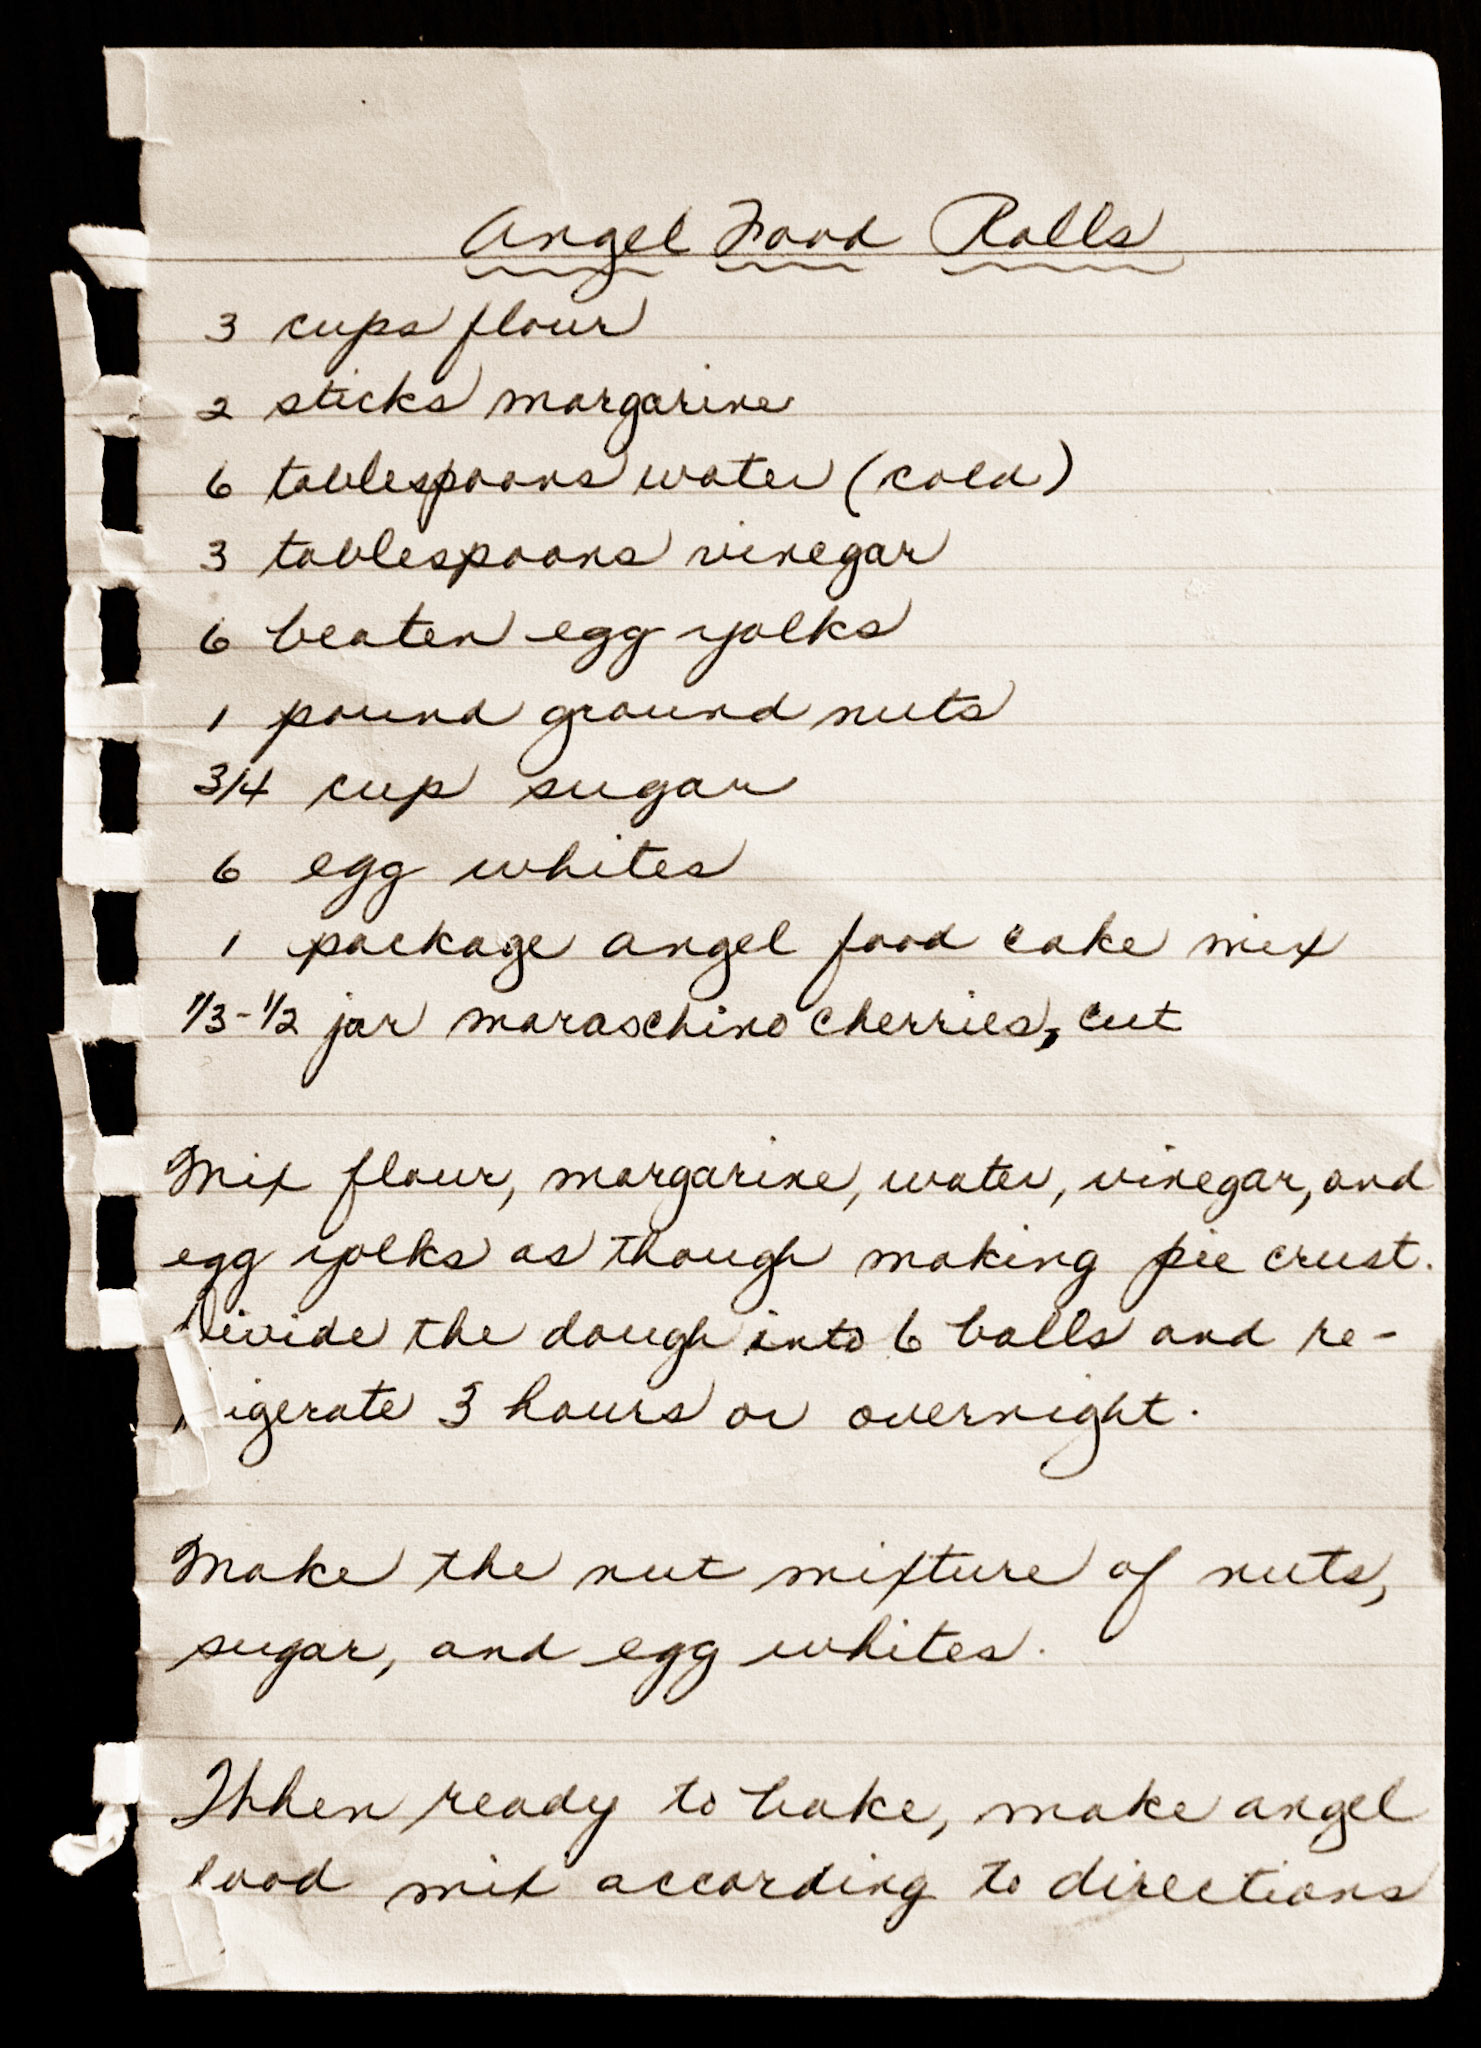 Angel Food Rolls
3 cups flour
2 sticks margarine
6 tablespoons water (cold)
3 tablespoons vinegar
6 beaten egg yolks
1 pound ground nuts
3/4 cup sugar
6 egg whites
1 package angel food cake mix
1/3-1/2 jar maraschino cherries, cut
Mix flour, margarine, water, vinegar, and
egg yolks as though making pie crust.
Divide the dough into 6 balls and re-
igerate 3 hours or overnight.
Make the nut mixture of nuts,
sugar, and egg whites.
When ready to bake, make angel
food mix according to directions